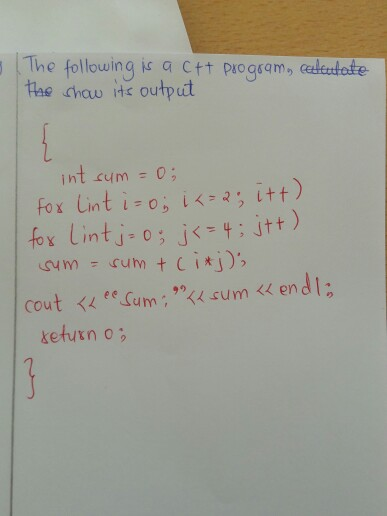 The following is a C++ program, calculate
the show its output
{
int sum = 0;
for (int i = 0; i <= 2; i++)
for (int j = 0; j <= 4; j++)
sum = sum + (i*j);
cout << "Sum:" << sum << endl;
return 0;
}